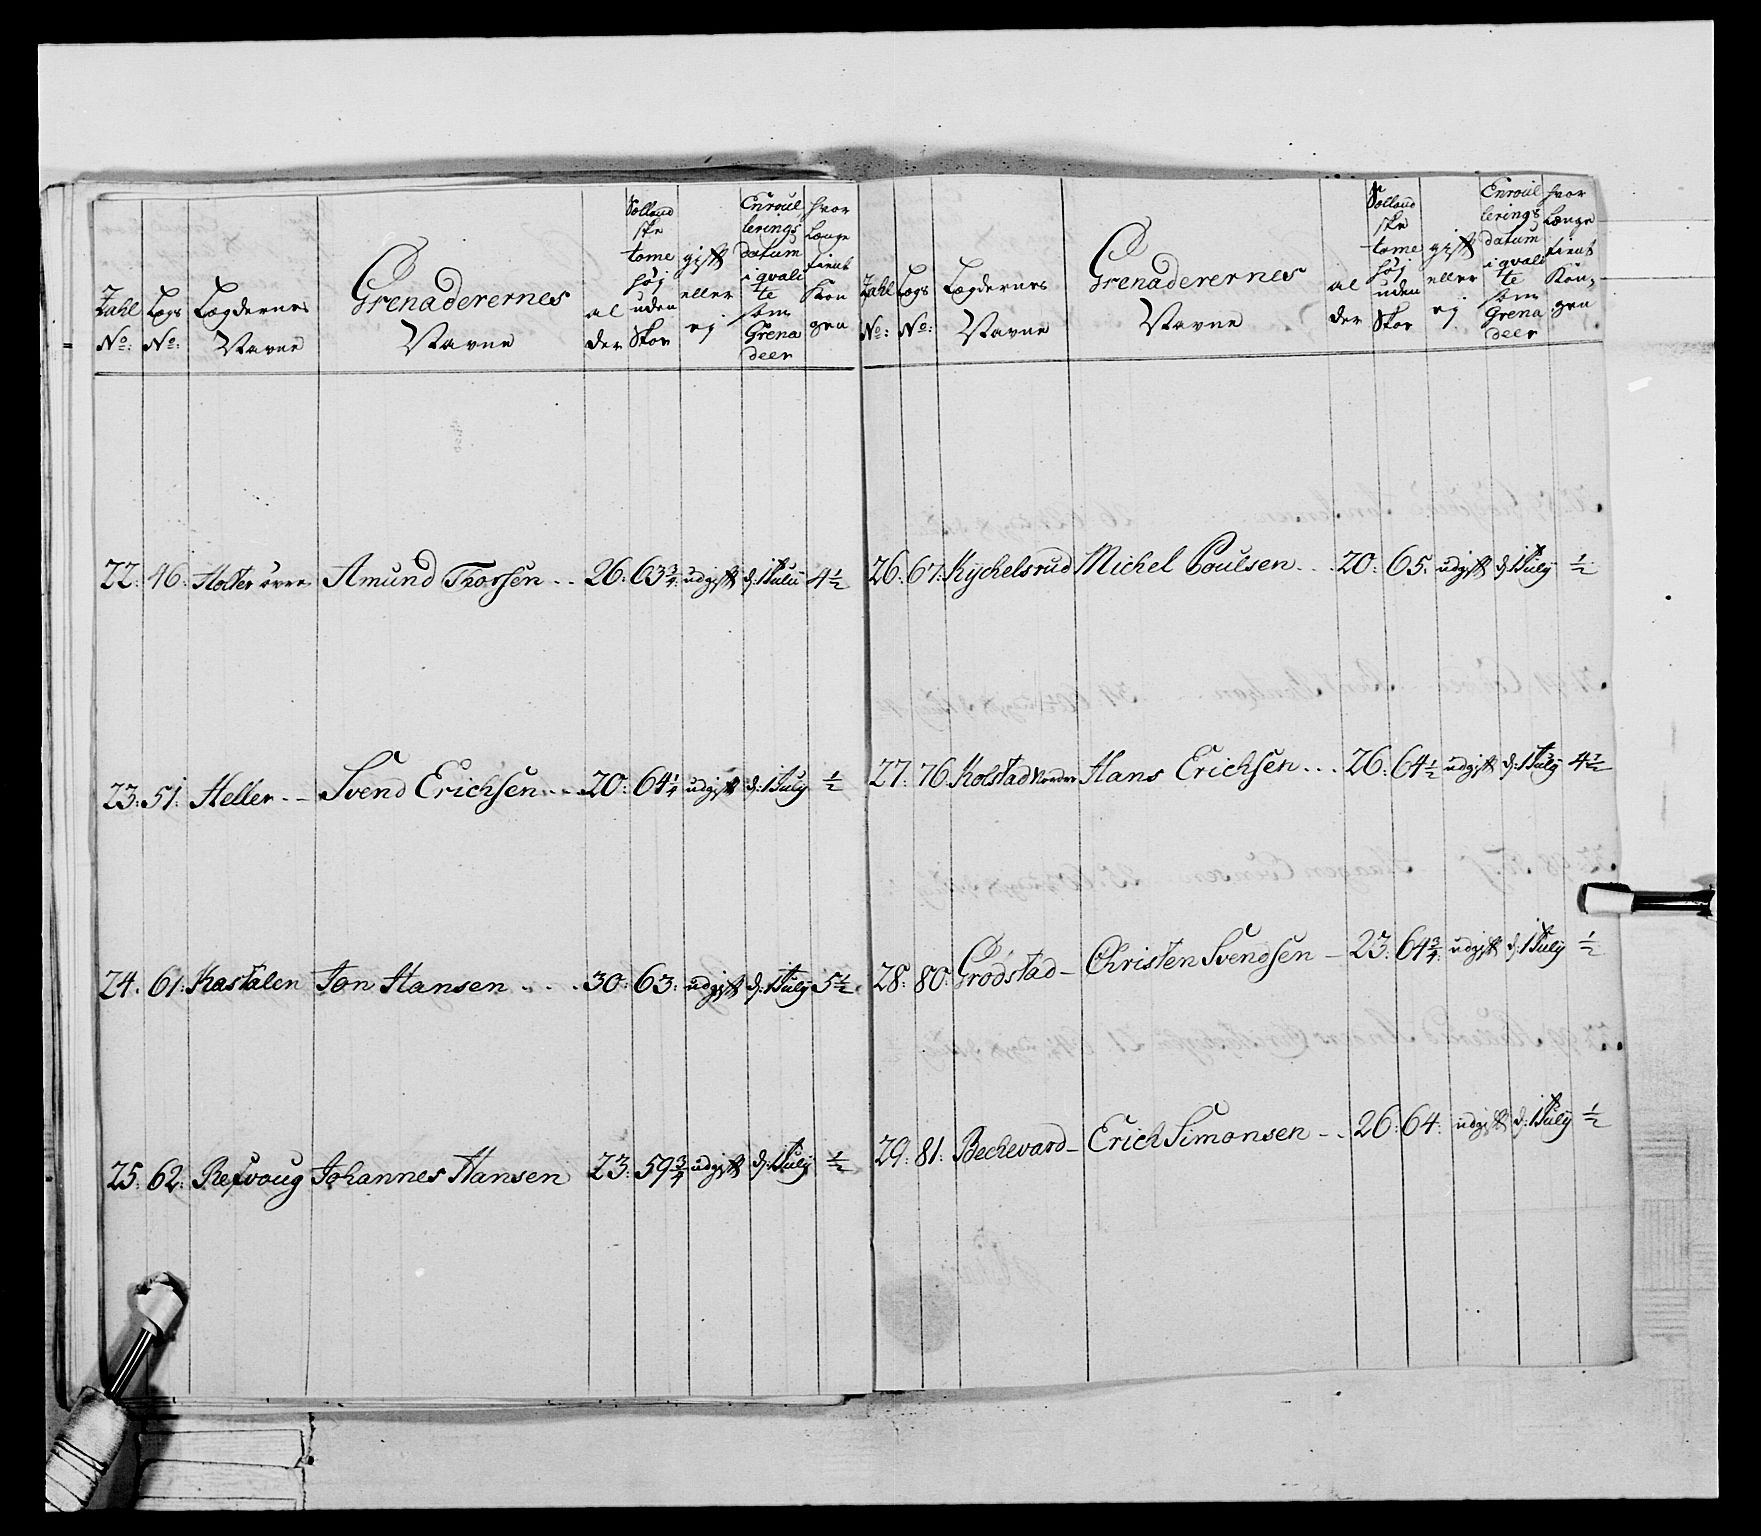 Zahl No: Lægs No: Lægdernes Navne Grenaderernes Navne al der Tolland ske tome høj uden Skoe gift eller ej Enroul lerings datum i qvali te som Grena deer hvor Længe tient Kon gen
22. 46. Holter övre Amund Thorsen .. 26. 63 3/4. udgift d: 1 Julii 4 1/2
23. 51. Heller -- Svend Erichsen ... 20. 64 1/4 udgift d: 1 July 1/2
24. 61. Kastalen Jon Hansen .... 30. 63. udgift d: 1 July 5 1/2
25. 62. Refvoug Johannes Hansen 23. 59 3/4 udgift d: 1 July 1/2
Zahl No: Lægs No: Lægdernes Navne Grenaderernes Navne al der Tolland ske tome høj uden Skoe gift eller ej Enroul lerings datum i qvali te som Grena deer hvor Længe tient Kon- gen
26. 67. Kychelsrud Michel Poulsen ... 20. 65. udgift d: 1 July 1/2
27. 76. Kolstad Nordre Hans Erichsen ... 26. 64 1/2 udgift d: 1 July 4 1/2
28. 80. Grodstad - Christen Svendsen - 23. 64 3/4. udgift d: 1 July 1/2
29. 81. Bechevard - Erich Simonsen -.. 26. 64. udgift d: 1 July 1/2